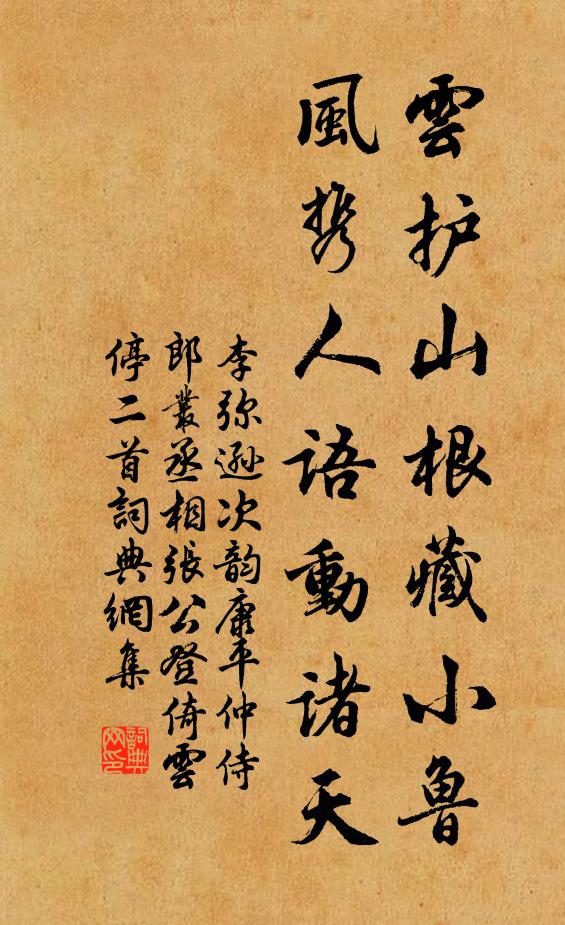 雲护山根藏小鲁
風携人语動诸天
李弥逊次韵康平仲侍
郎叢丞相張公登倚雲
停二首詞典網集
詞典网印